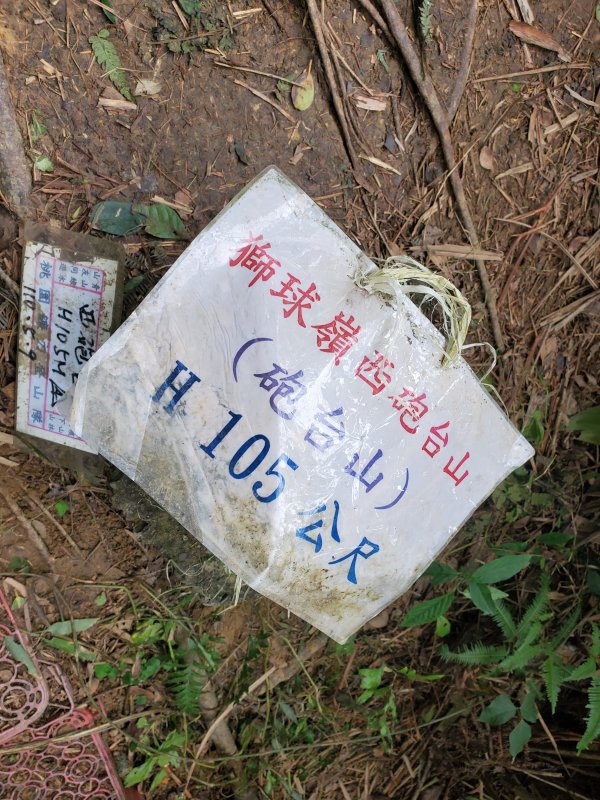 獅球嶺西砲台山
(砲台山)
H 105 公尺
西砲台
H105M
110.5.9